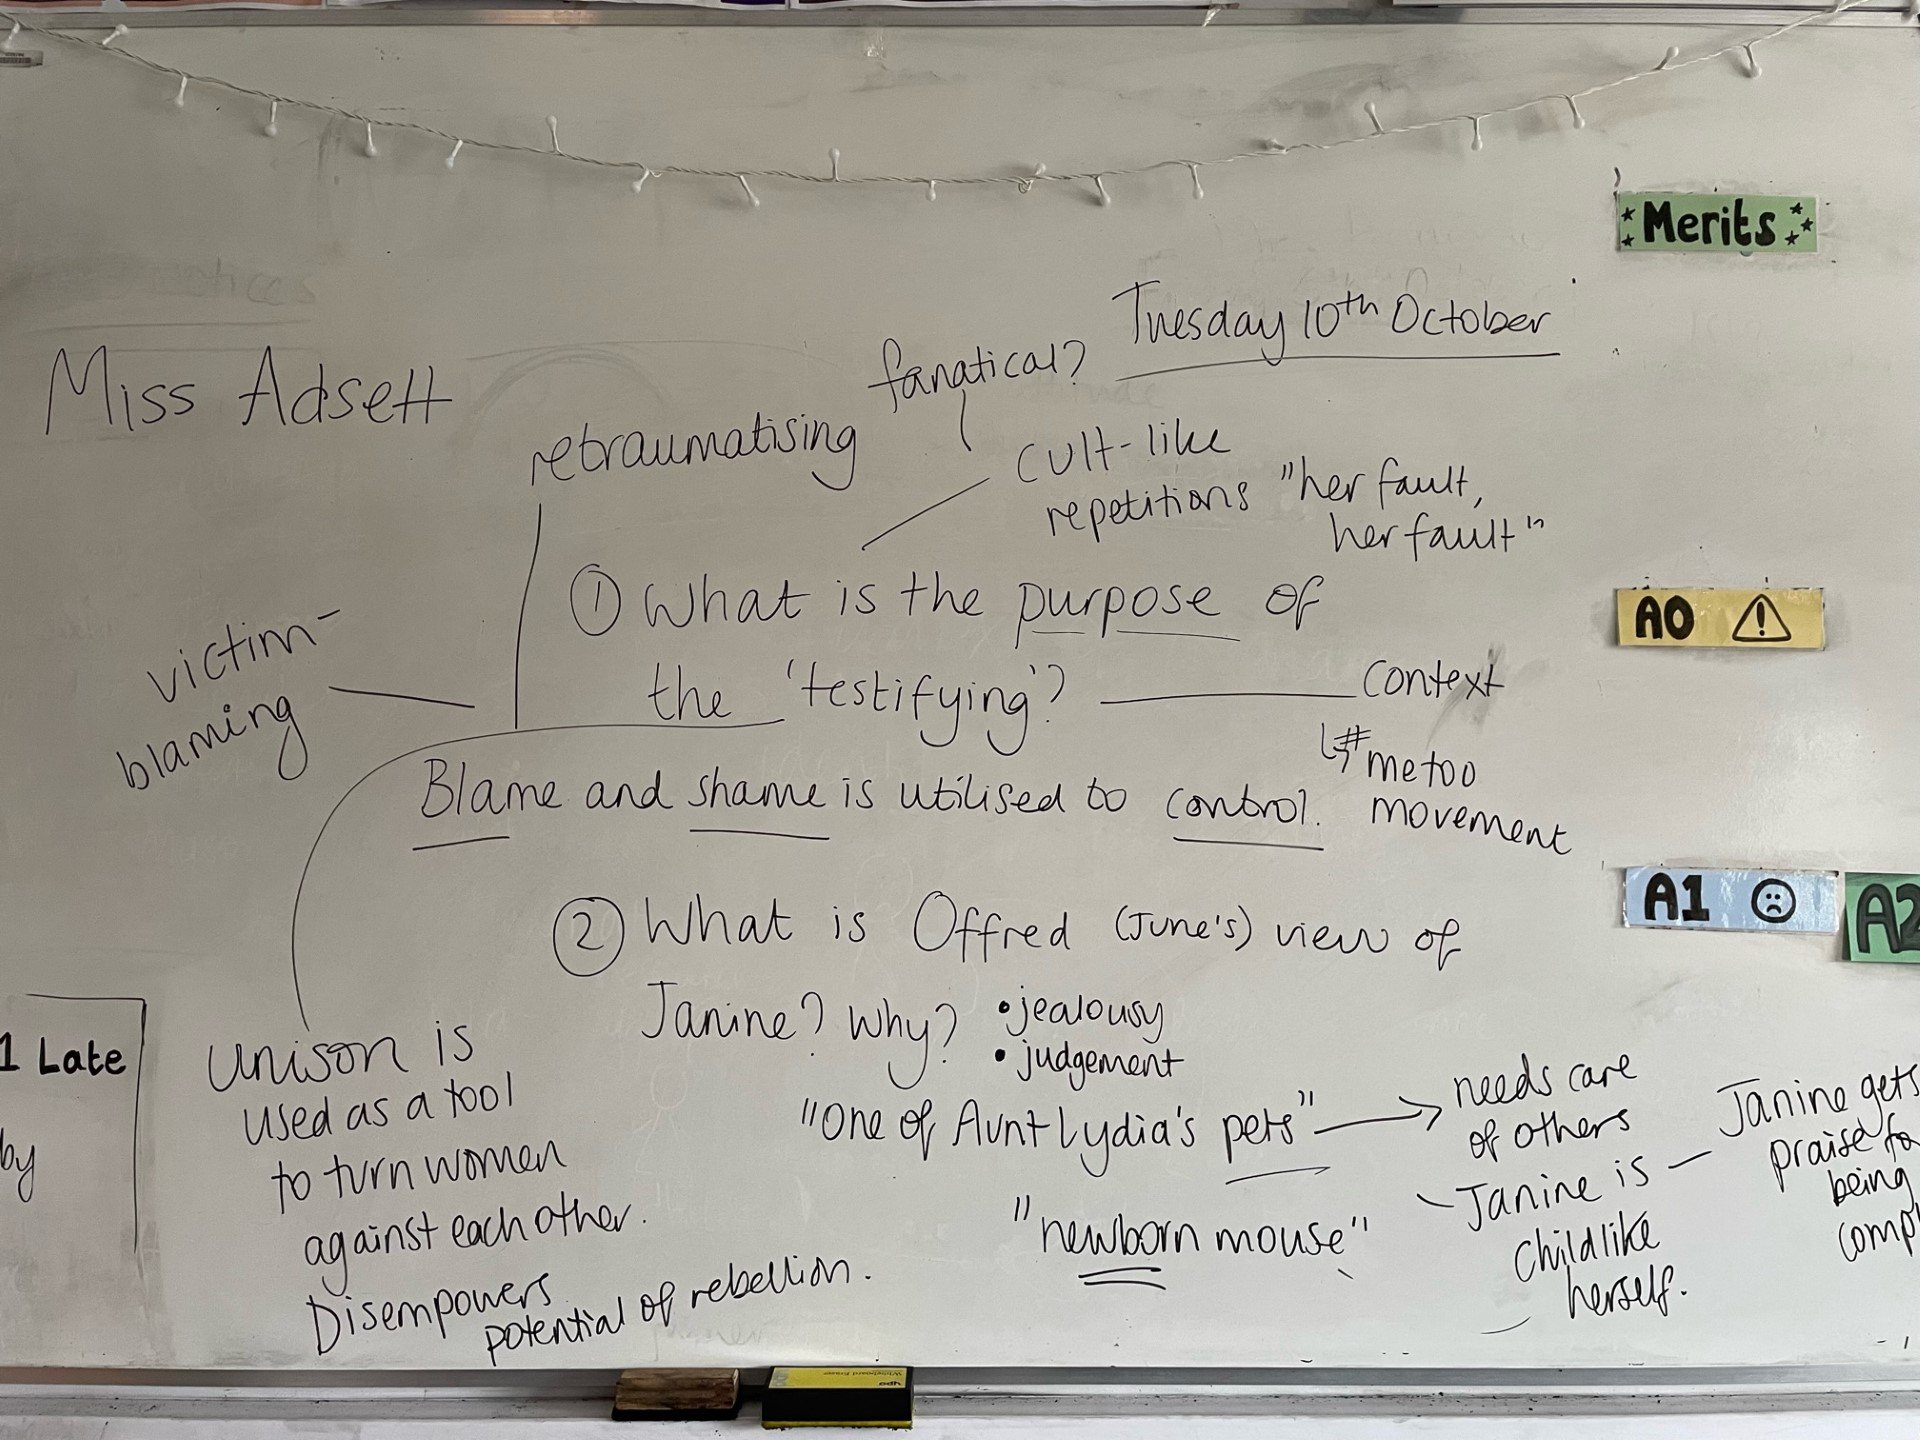 Merits
Tuesday 10th October
Miss Adsett
fanatical?
retraumatising
cult-like
repetitions "her fault,
her fault"
① What is the purpose of
the 'testifying'?
AO
context
↳ #metoo
movement
victim-
blaming
Blame and shame is utilised to control.
② What is Offred (June's) view of
Janine? Why?
• jealousy
• judgement
A1
A2
1 Late
by
unison is
used as a tool
to turn women
against each other.
Disempowers
potential of rebellion.
"One of Aunt Lydia's pets"
needs care
of others
"newborn mouse"
Janine is
childlike
herself.
Janine gets
praise fo
being
compl
ypo
Whiteboard Eraser